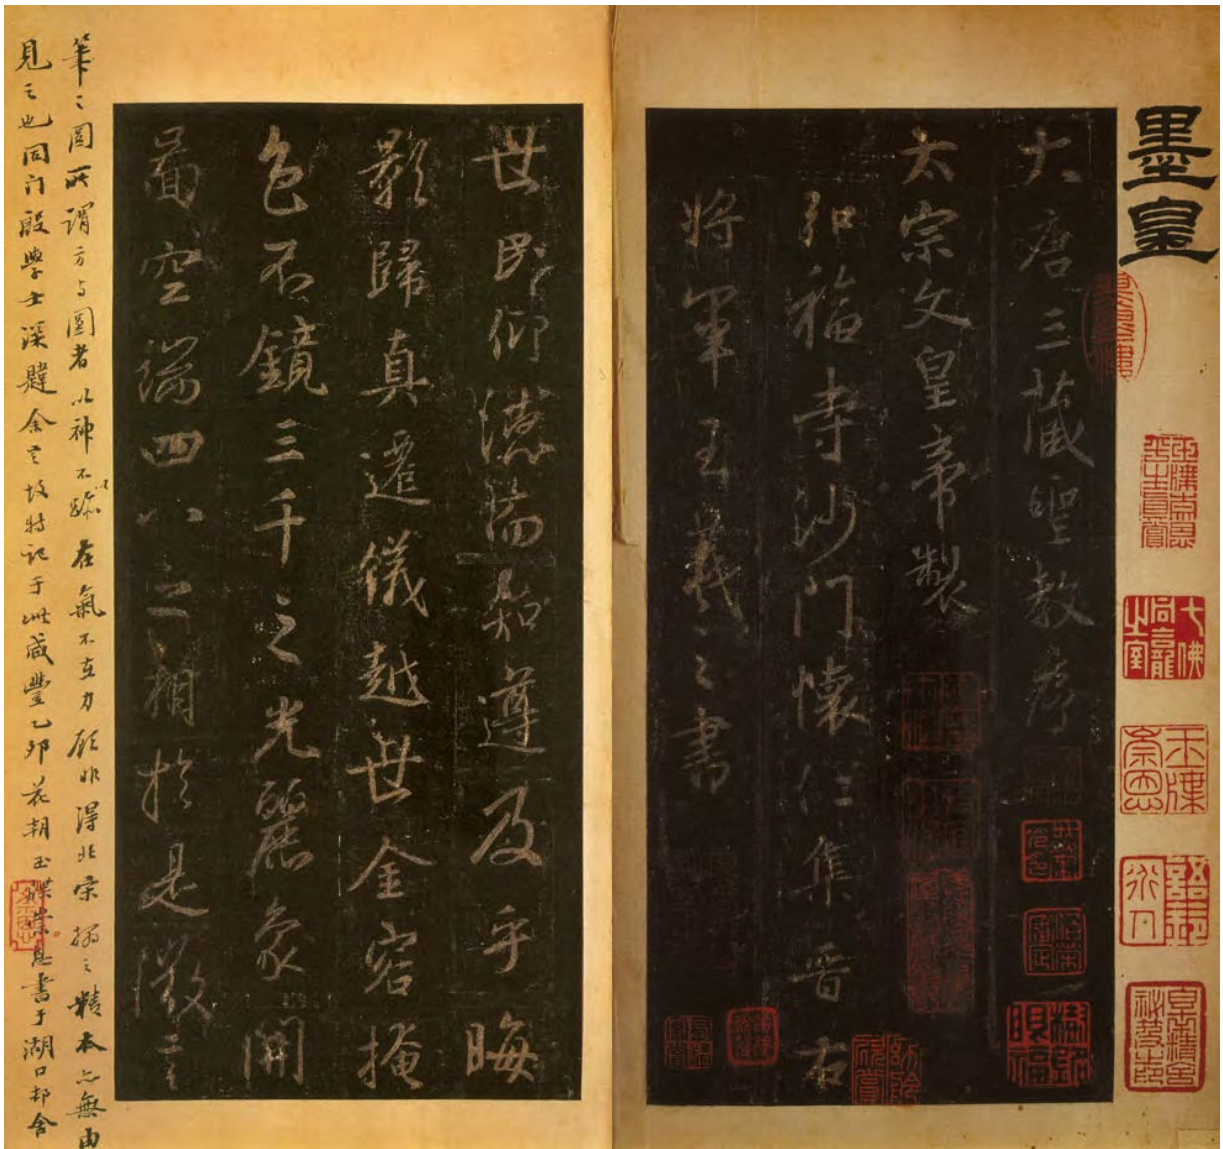 墨皇
大唐三藏聖教序
太宗文皇帝製
弘福寺沙門懷仁集晉右
將軍王羲之書
世即仰德而知遵及乎晦
影歸真遷儀越世金容掩
色不鏡三千之光麗象開
圖空端四八之相於是微言
筆筆圓所謂方与圓者以神不以跡在氣不在力顧非得北宋搨之精本亦無由
見之也同门殷學士深韙余言故特記于此咸豐乙卯花朝玉牒崇恩書于湖口邨舍
七佛同龕之室
玉牒崇恩